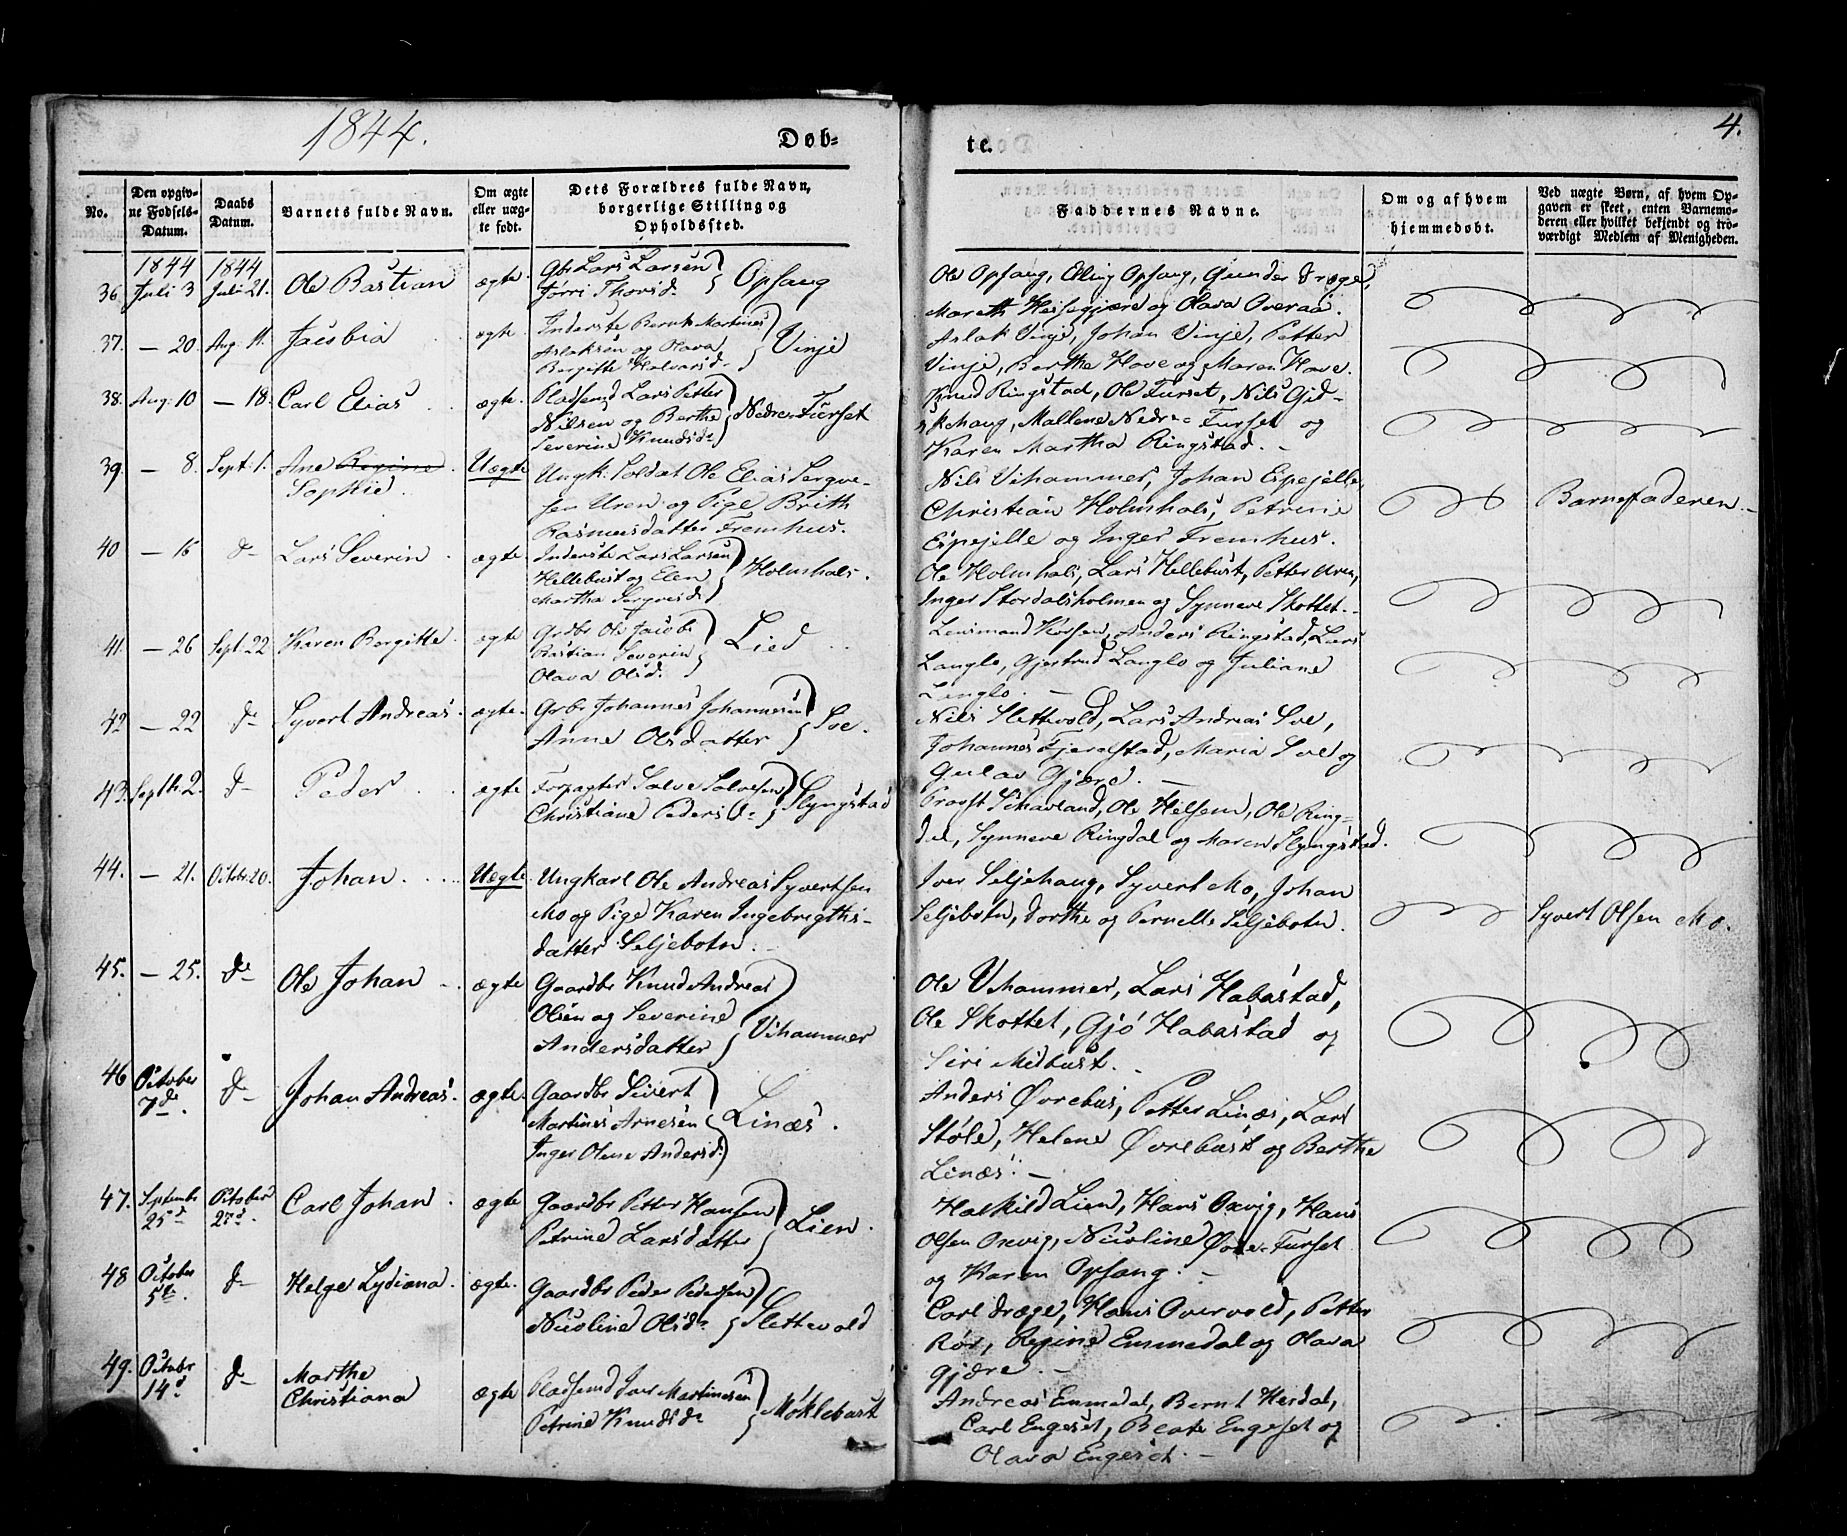 1844.
Døb=
te.
4.
No.
Den opgiv-
ne Fødsels-
Datum.
Daabs
Datum.
Barnets fulde Navn.
Om ægte
eller uæg-
te født.
Dets Forældres fulde Navn,
borgerlige Stilling og
Opholdssted.
Faddernes Navne.
Om og af hvem
hjemmedøbt.
Ved uægte Børn, af hvem Op-
gaven er skeet, enten Barnemo-
deren eller hvilket bekjendt og tro-
værdigt Medlem af Menigheden.
36
1844
Juli 3
1844
Juli 21.
Ole Bastian
ægte
Gbr Lars Larsen
Thorsd.
Opsang
Ole Opsang, Elling Opsang, Gunder Drøge,
Mareth og Olava Overaae.
37.
— 20.
Aug. 11.
Jacobia
ægte
Inderste Bernt Martines
Aslaksen og Olava
Bergitte Halvorsd.
Vinje
Aslak Vinje, Johan Vinje, Petter
Vinje, Berthe Hove og Maren Hove.
38.
Aug. 10
— 18.
Carl Elias
ægte.
Pladsmd Lars Petter
Nilsen og Berthe
Severine Knudsdr
Nedre-Furset
Knud Ringstad, Ole Furset, Nils Gid-
skehaug, Mallene Nedre-Furset og
Karen Martha Ringstad. -
39.
— 8.
Sept. 1.
Ane Regine
Sophie.
Uægte
Ungk. Soldat Ole Elias Sergve-
sen Uren og Pige Brith
Rasmusdatter Fremhus.
Nils Vihammer, Johan Espejelle,
Christian Holmhols, Petrine
Espejelle og Inger Fremhus.
Barnefaderen.
40
— 16
do
Lars Severin
ægte
Inderste Lars Larsen
Hellebust og Elen
Martha Sergvesd.
Holmhols.
Ole Holmhols, Lars Hellebust, Petter Uren,
Inger Stordalsholmen og Synneve Skottet.
41.
— 26
Sept. 22
Karen Bergitte.
ægte
Grdbr Ole Jacob
Bastian Severin
Olava Olsd.
Lied
Lensmand, Anders Ringstad, Lars
Langlo, Gjertrud Langlo og Juliane
Linglo. —
42
— 22
do
Syvert Andreas.
ægte.
Grbr. Johannes Johannesen
Anne Olsdatter
Sve.
Nils Slettevold, Lars Andreas Sve,
Johannes Fjerestad, Maria Sve og
Gjære. —
43.
Septbr. 2.
do
Peder
ægte
Forpagter Salve Salvesen
Christiane Pedersdr
Slyngstad
Provst, Ole, Ole Ring-
dal, Synneve Ringdal og Maren Slyngstad.
44.
— 21.
October 20.
Johan.
Uægte
Ungkarl Ole Andreas Syvertsen
Mo og Pige Karen Ingebrigths-
datter Seljebotn.
Iver Seljehaug, Syvert Mo, Johan
Seljebotn, Dorthe og Pernelle Seljebotn.
Syvert Olsen Mo.
45.
— 25.
do
Ole Johan
ægte
Gaardbr Knud Andreas
Olsen og Severine
Andersdatter
Vihammer
Ole Vihammer, Lars Habostad,
Ole Skottet, Gjø Habostad og
Siri Melbust.
46
October
7de.
do
Johan Andreas.
ægte.
Gaardbr Sivert
Martines Arnesen
Inger Olene Andersdr
Linæs.
Anders Øvrebus, Petter Linæs, Lars
Støle, Helene Øvrebust og Berthe
Linæs. —
47.
Septembr
25de
October
27de.
Carl Johan
ægte
Gaardbr Petter Hansen
Petrine Larsdatter
Lien.
Haskild Lien, Hans Oxvig, Hans
Olsen Oxvig, Nicoline Øvre-Furset
og Karen Opsang. -
48
October
5te.
do
Helge Lydiana.
ægte.
Gaardbr Peder Pedersen
Nicoline Olsdr
Slettevold
Carl Drøge, Hans Overvold, Petter
Rør, Regine Emmedal og Olava
Gjære. —
49.
October
14d.
do
Marthe
Christiana
ægte
Pladsmd Iver Martinesen
Petrine Knudsdr
Møklebust
Andreas Emmedal, Bernt Herdal,
Carl Engeset, Beate Engeset og
Olava Engeset. -